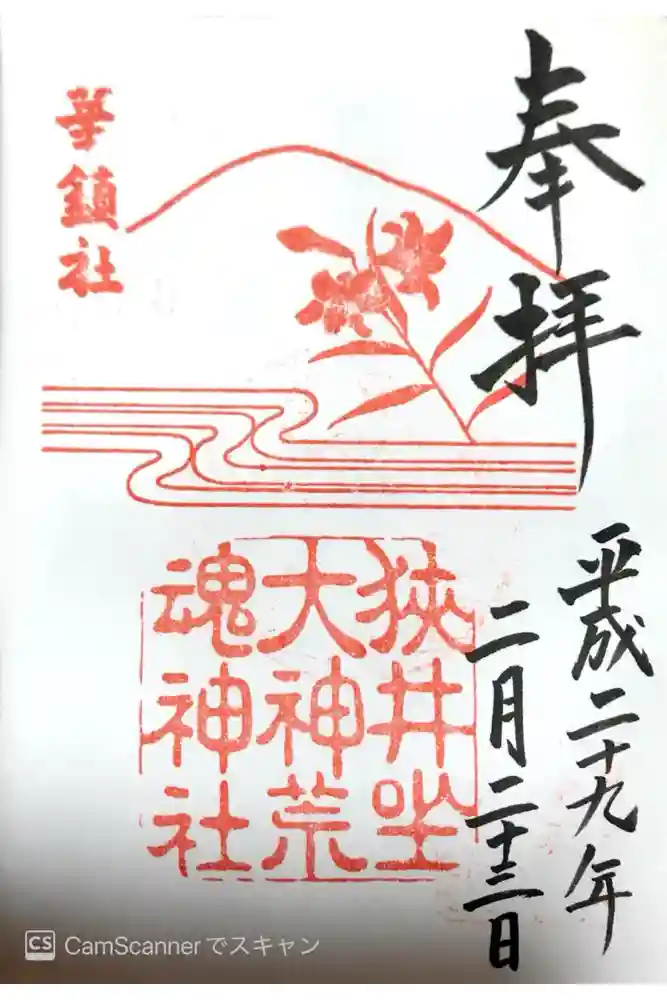 奉拝
平成二十九年
二月二十三日
狭井坐
大神荒
魂神社
華鎮社
CS CamScannerでスキャン